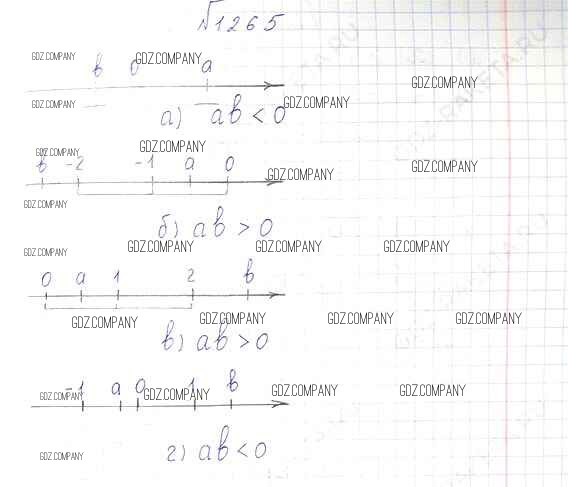 №1265
GDZ.COMPANY GDZ.COMPANY
b 0 a
GDZ.COMPANY
GDZ.COMPANY GDZ.COMPANY
а) ab < 0
GDZ.COMPANY GDZ.COMPANY
b -2 -1 a 0
GDZ.COMPANY
GDZ.COMPANY
б) ab > 0
GDZ.COMPANY GDZ.COMPANY GDZ.COMPANY GDZ.COMPANY
0 a 1 2 b
GDZ.COMPANY GDZ.COMPANY GDZ.COMPANY GDZ.COMPANY
в) ab > 0
-1 a 0 1 b
GDZ.COMPANY GDZ.COMPANY GDZ.COMPANY GDZ.COMPANY
г) ab < 0
GDZ.COMPANY